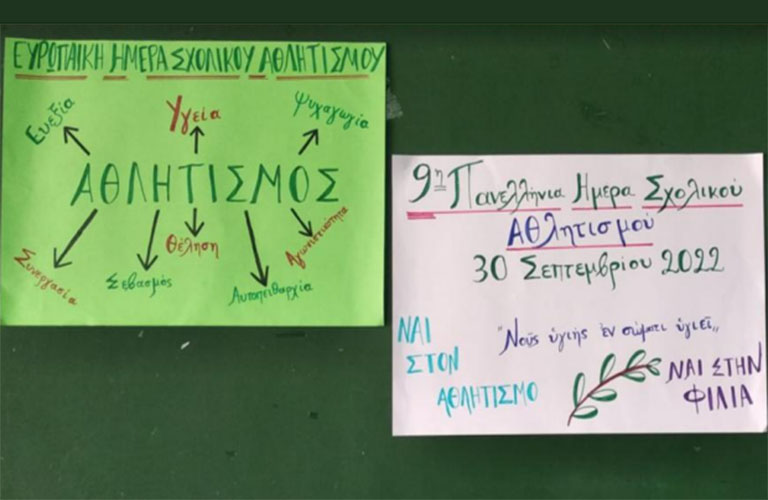 ΕΥΡΩΠΑΙΚΗ ΗΜΕΡΑ ΣΧΟΛΙΚΟΥ ΑΘΛΗΤΙΣΜΟΥ
Ευεξία
Υγεία
Ψυχαγωγία
ΑΘΛΗΤΙΣΜΟΣ
Συνεργασία
Σεβασμός
Θέληση
Αυτοπειθαρχία
Αγωνιστικότητα
9η Πανελλήνια Ημερα Σχολικού
Αθλητισμού
30 Σεπτεμβρίου 2022
"Νοῦς ὑγιής ἐν σώματι ὑγιεῖ,,
ΝΑΙ
ΣΤΟΝ
ΑΘΛΗΤΙΣΜΟ
ΝΑΙ ΣΤΗΝ
ΦΙΛΙΑ